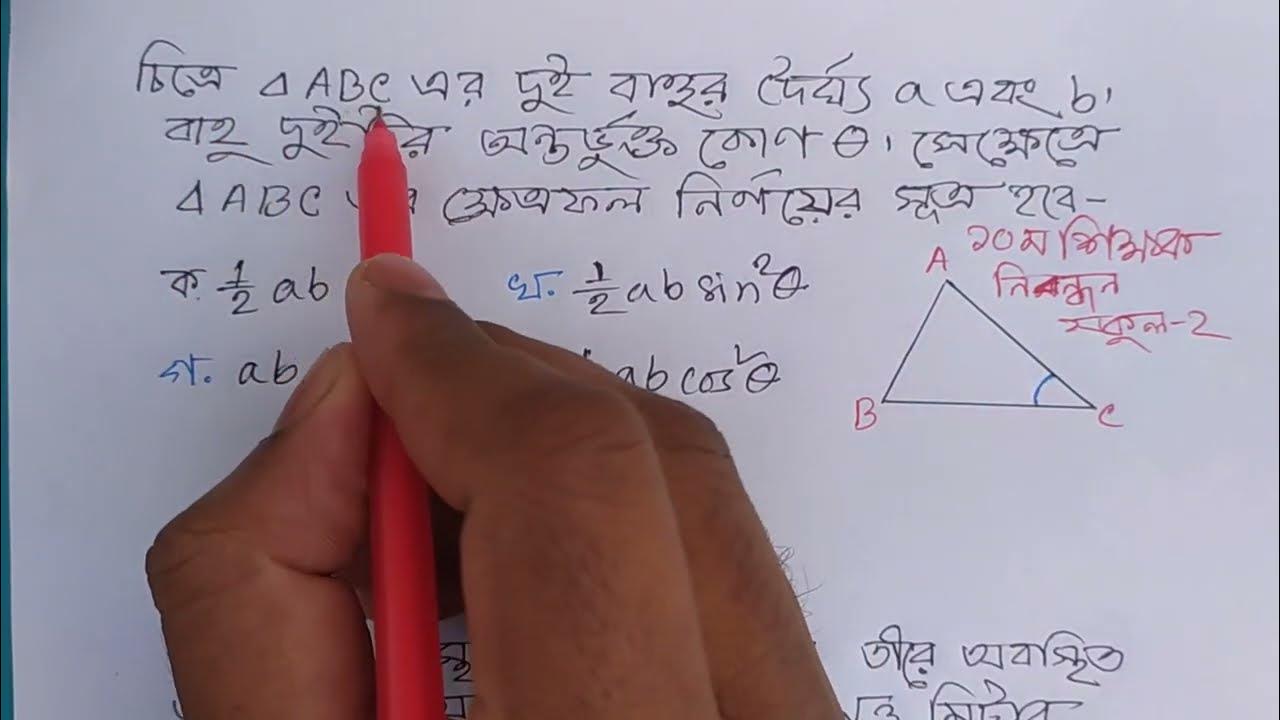 চিত্রে △ABC এর দুই বাহুর দৈর্ঘ্য a এবং b।
বাহু অন্তর্ভুক্ত কোণ θ। সেক্ষেত্রে
△ABC ক্ষেত্রফল নির্ণয়ের সূত্র হবে-
ক. 1/2 ab
খ. 1/2 ab sin²θ
গ. ab
ab cos²θ
১০ম শিক্ষক
নিবন্ধন
স্কুল-২
A
B
C
তীরে অবস্থিত